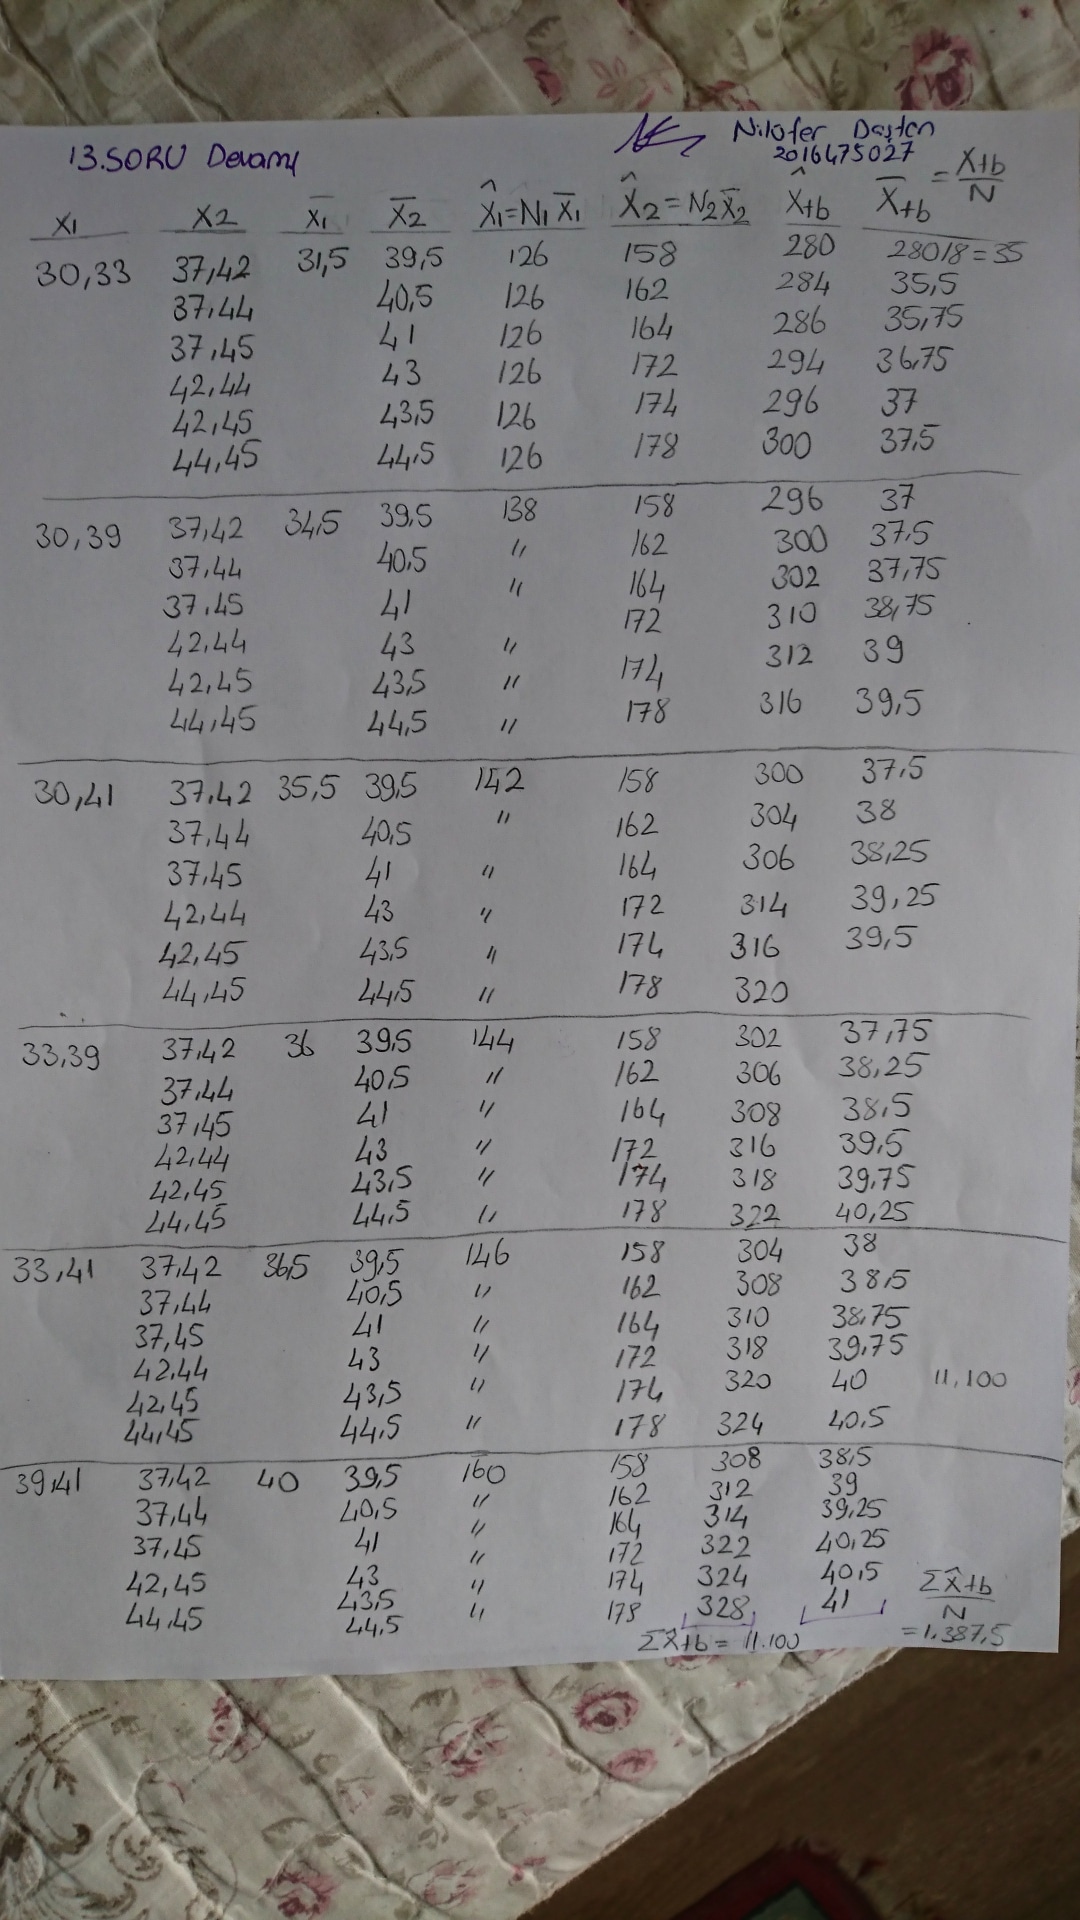 13.SORU Devamı
Nilüfer Daştan
2016475027
X1 X2 X̄1 X̄2 X̂1=N1 X̄1 X̂2=N2X̄2 X̂tb X̄tb = Xtb/N
30,33 37,42 31,5 39,5 126 158 280 280/8=35
37,44 40,5 126 162 284 35,5
37,45 41 126 164 286 35,75
42,44 43 126 172 294 36,75
42,45 43,5 126 174 296 37
44,45 44,5 126 178 300 37,5
30,39 37,42 34,5 39,5 138 158 296 37
37,44 40,5 " 162 300 37,5
37,45 41 " 164 302 37,75
42,44 43 " 172 310 38,75
42,45 43,5 " 174 312 39
44,45 44,5 " 178 316 39,5
30,41 37,42 35,5 39,5 142 158 300 37,5
37,44 40,5 " 162 304 38
37,45 41 " 164 306 38,25
42,44 43 " 172 314 39,25
42,45 43,5 " 174 316 39,5
44,45 44,5 " 178 320
33,39 37,42 36 39,5 144 158 302 37,75
37,44 40,5 " 162 306 38,25
37,45 41 " 164 308 38,5
42,44 43 " 172 316 39,5
42,45 43,5 " 174 318 39,75
44,45 44,5 " 178 322 40,25
33,41 37,42 36,5 39,5 146 158 304 38
37,44 40,5 " 162 308 38,5
37,45 41 " 164 310 38,75
42,44 43 " 172 318 39,75
42,45 43,5 " 174 320 40 11,100
44,45 44,5 " 178 324 40,5
39,41 37,42 40 39,5 160 158 308 38,5
37,44 40,5 " 162 312 39
37,45 41 " 164 314 39,25
42,45 43 " 172 322 40,25
44,45 43,5 " 174 324 40,5
44,5 " 178 328 41
ΣX̂tb = 11.100
ΣX̂tb/N = 1.387,5